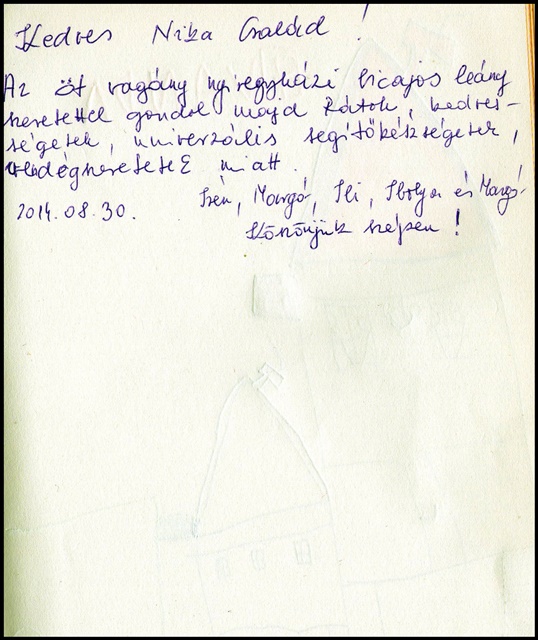 Kedves Nika Család !
Az öt vagány nyíregyházi bicajos leány
szeretettel gondol majd Rátok, kedves-
ségetek, univerzális segítőkészségetek,
vendégszeretetE miatt.
2014.08.30. Irén, Margó, Ili, Ibolya és Margó.
Köszönjük szépen !